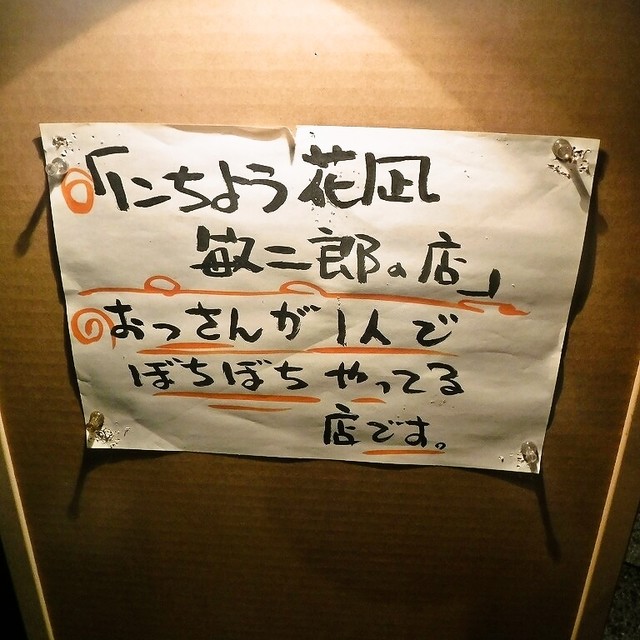 「にちよう花凪
敏二郎の店」
おっさんが1人で
ぼちぼちやってる
店です。